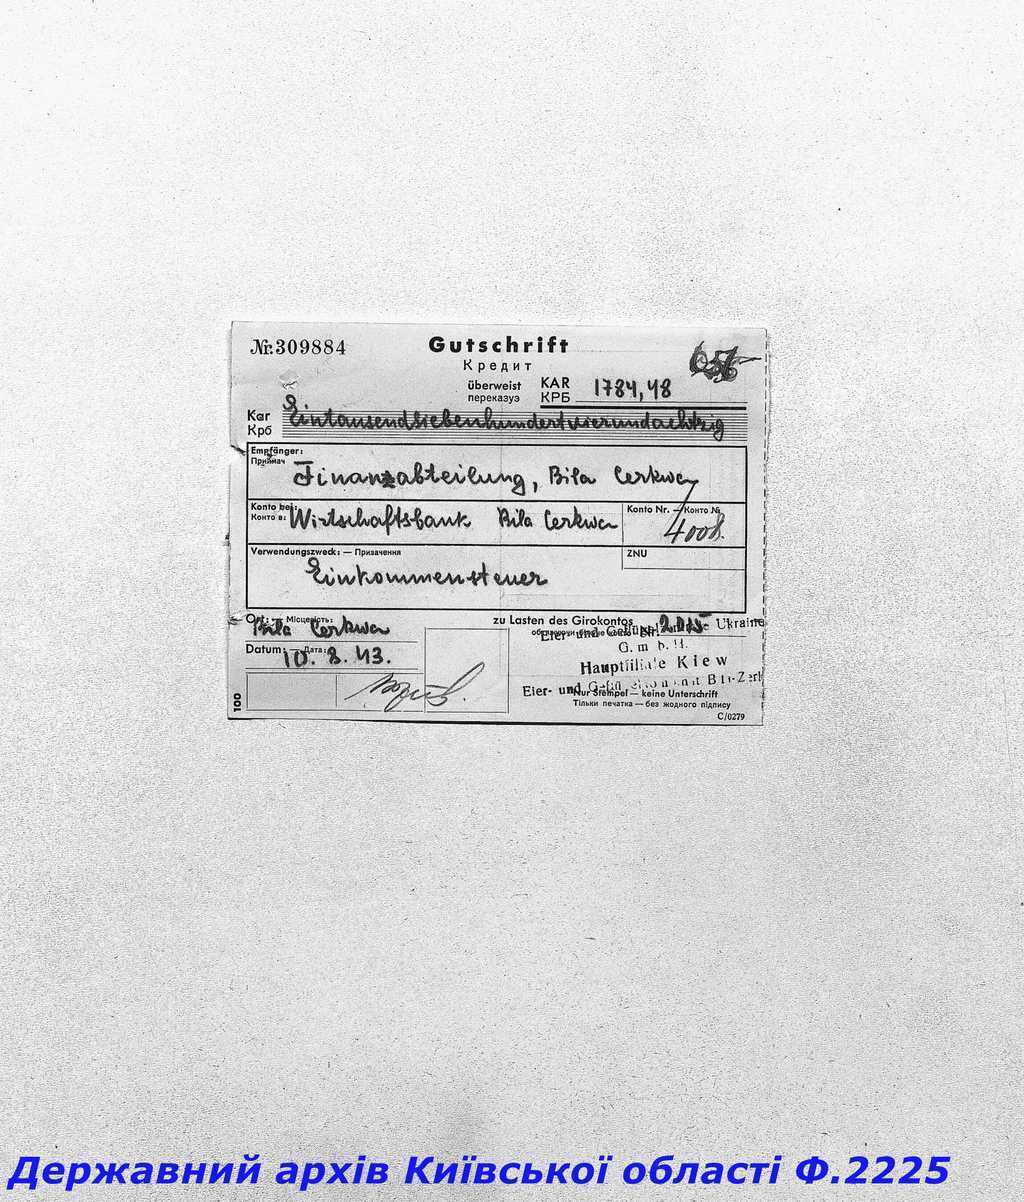 №.309884
Gutschrift
Кредит
überweist KAR 1784,48
переказує КРБ
Kar Eintausendsiebenhundertvierundachtzig
Крб
Empfänger:
Приймач
Finanzabteilung, Bila Cerkwa
Konto bei: Wirtschaftsbank Bila Cerkwa
Конто в:
Konto Nr. — Конто №
4008.
Verwendungszweck: — Призначення
ZNU
Einkommensteuer
Ort: — Місцевість:
Bila Cerkwa
zu Lasten des Girokontos
Eier- und Ukraine
G. m. b. H.
Datum: — Дата:
10. 8. 43.
Hauptfiliale Kiew
Eier- und
Nur Stempel — keine Unterschrift
Тільки печатка — без жодного підпису
100
C/0279
Державний архів Київської області Ф.2225